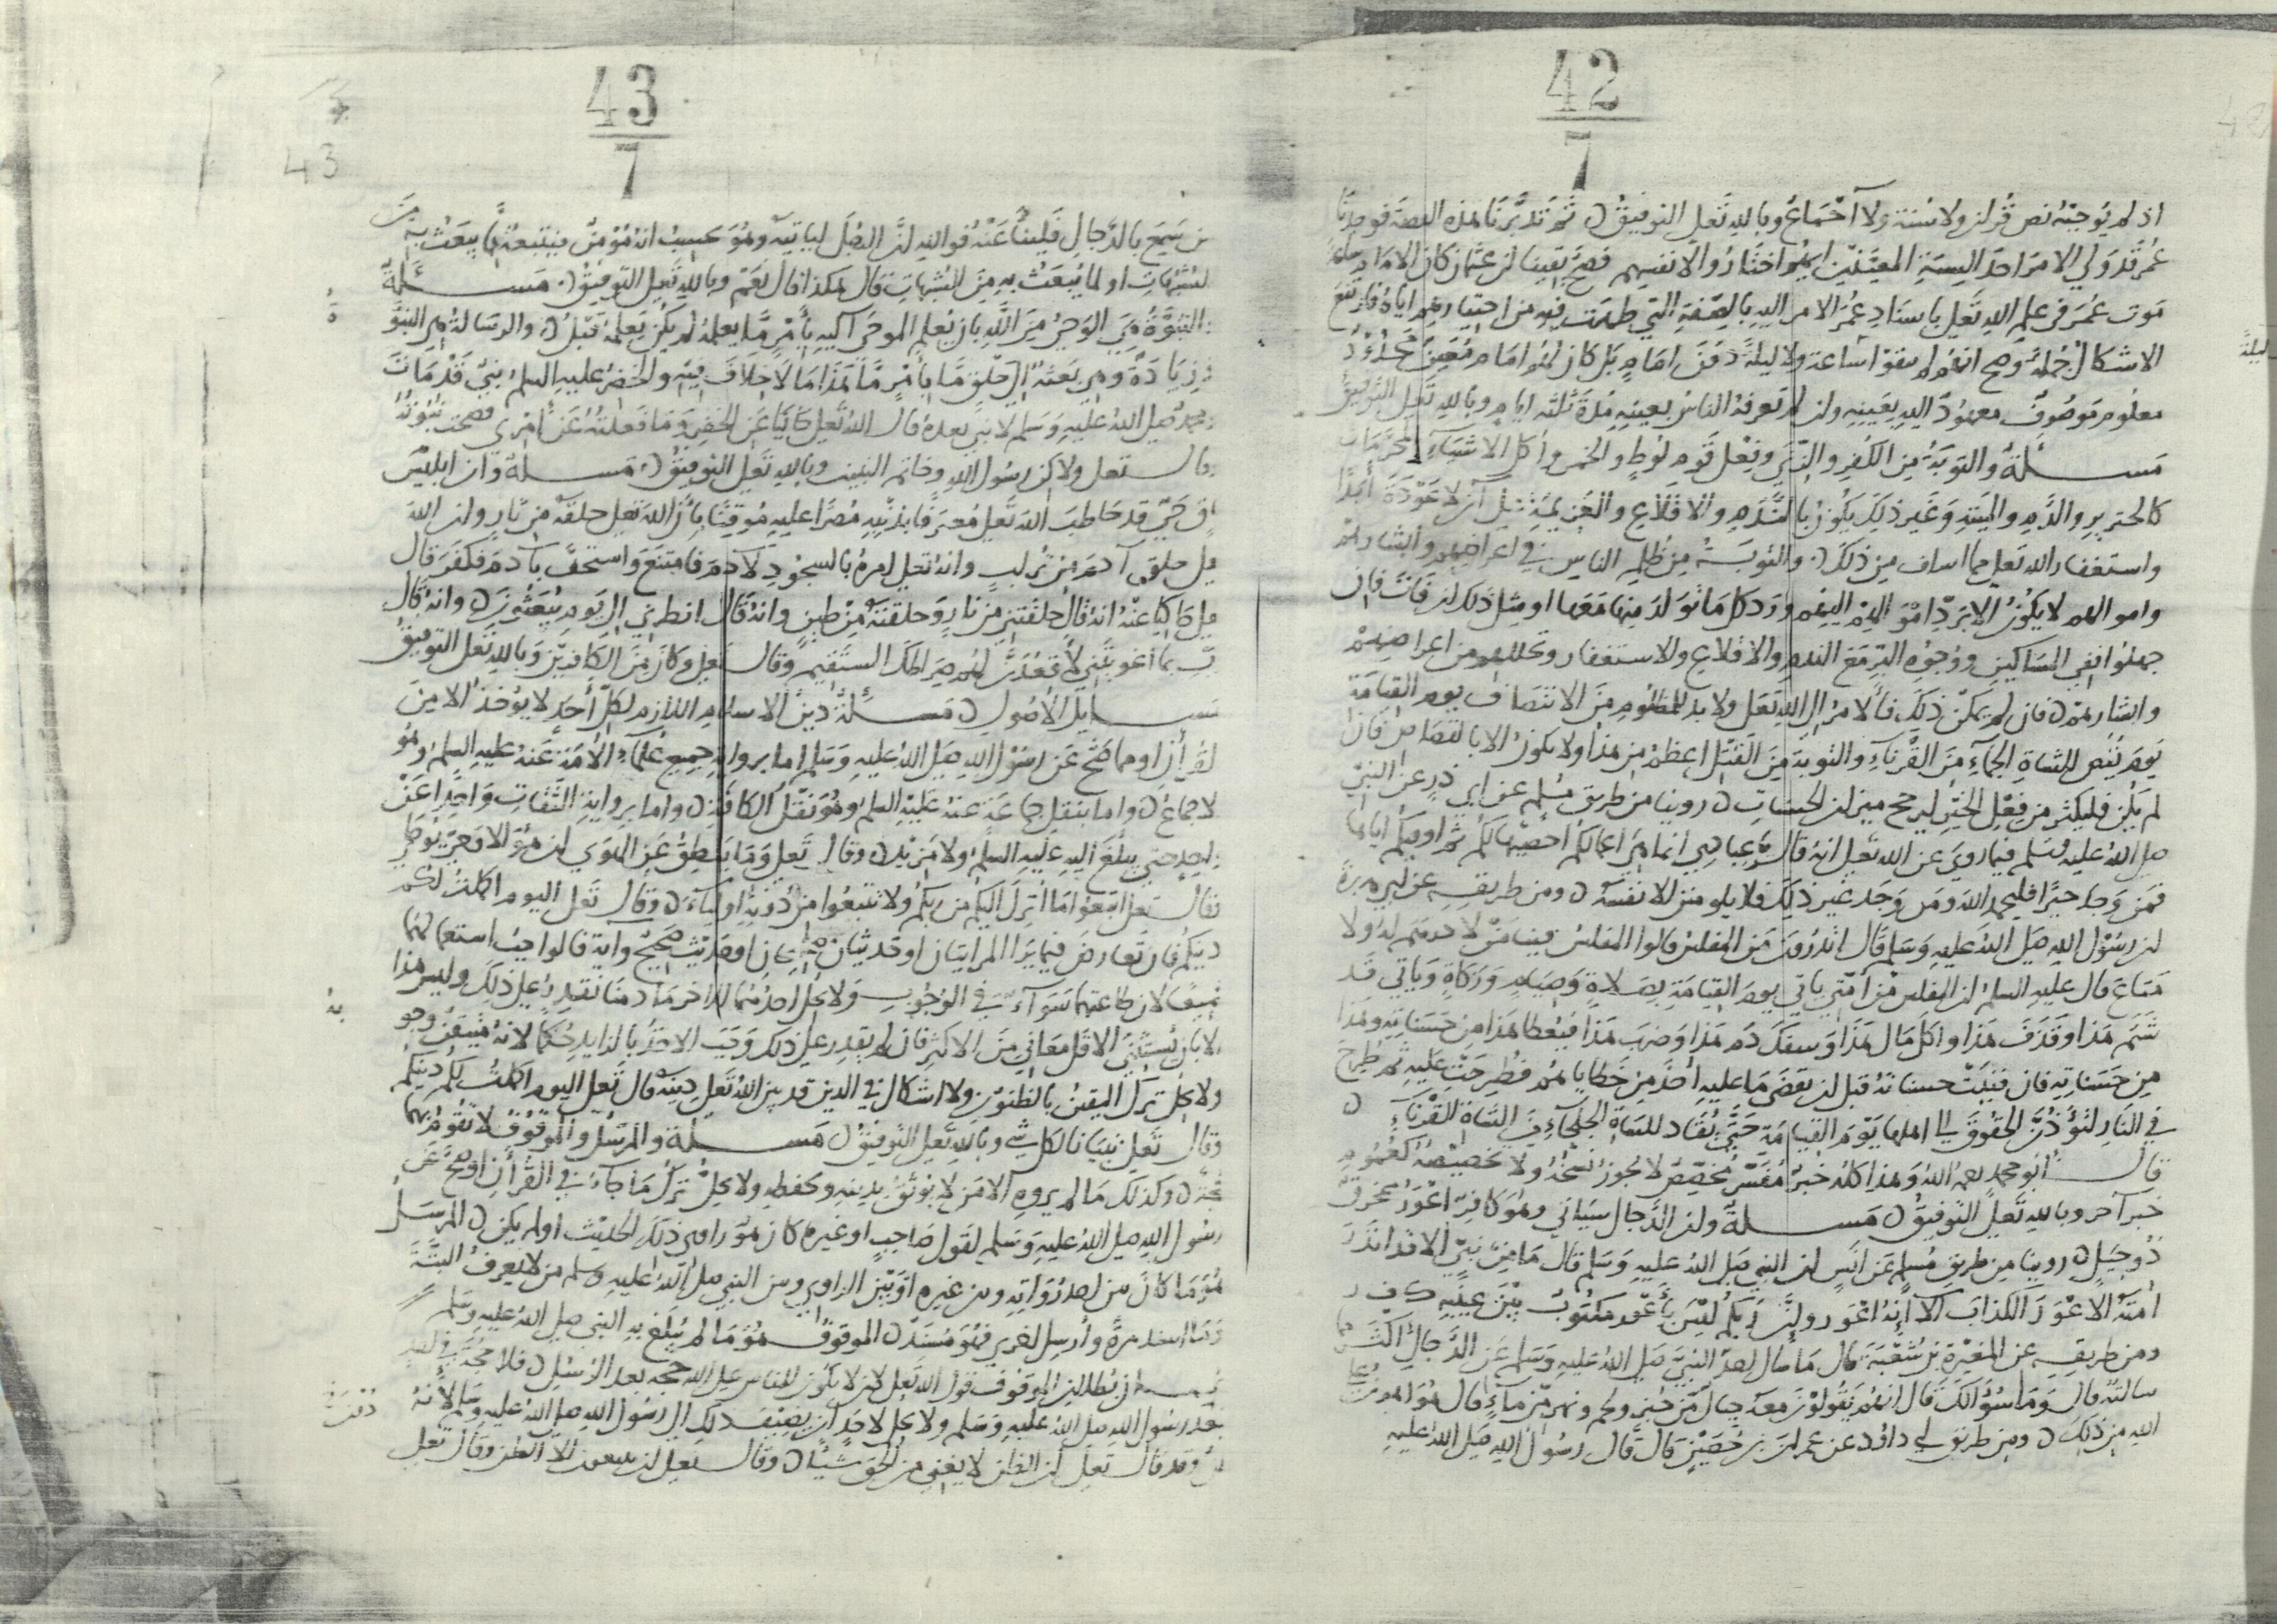 42
7
اذ لم يوجبه نص قرلن ولا سنة ولا آجماع وبالله تعلى التوفيق ثم تدبرنا هذه القصة فوجدنا
عمر قد ولي الامر احد الستة المعينين ايهم اختاروا لانفسهم فصح يقينا لن عثمان كان الامام
موت عمر في علم الله تعلى باسناد عمر الامر اليه بالصفة التي ظهرت فيه من اختيارهم اياه فارتفع
الاشكال جملة وصح انهم لم يبقوا ساعة ولا ليلة دون امام بل كان لهم امام معين محدود
معلوم موصوف معهود اليه بعينه ولن لم تعرفه الناس بعينه مدة ثلثه ايام وبالله تعلى التوفيق
مسلة والتوبة من الكفر والزنى وفعل قوم لوط والخمر واكل الاشياء المحرمات
كالخنزير والدم والميتة وغير ذلك يكون بالندم والاقلاع والعزيمة على آن لا عودة أبدا
واستغفار الله تعلى مما اسلف من ذلك والتوبة من ظلم الناس في اعراضهم وابشارهم
واموالهم لا يكون الا برد اموالهم اليهم ورد كل ما تولد منها معها او مثل ذلك لن فات فان
جهلوا ففي المساكين ووجوه البر مع الندم والاقلاع والاستغفار وتحللهم من اعراضهم
وابشارهم فان لم يمكن ذلك فالامر الى الله تعلى ولا بد للمظلوم من الانتصاف يوم القيامة
يوم يقتص للشاة الجماء من القرناء والتوبة من القتل اعظم من هذا ولا يكون الا بالقصاص فان
لم يكن فليكثر من فعل الخير ليرجح ميزان الحسنات روينا من طريق مسلم عن ابي ذر عن النبي
صلى الله عليه وسلم فيما روى عن الله تعلى انه قال يا عبادي انما هي اعمالكم احصيها لكم ثم اوفيكم اياها
فمن وجد خيرا فليحمد الله ومن وجد غير ذلك فلا يلومن الا نفسه ومن طريقه عن ابي هريرة
لن رسول الله صلى الله عليه وسلم قال اتدرون من المفلس قالوا المفلس فينا من لا درهم له ولا
متاع قال عليه السلم لن المفلس من أمتي ياتي يوم القيامة بصلاة وصيام وزكاة وياتي قد
شتم هذا وقذف هذا واكل مال هذا وسفك دم هذا وضرب هذا فيعطا هذا من حسناته وهذا
من حسناته فان فنيت حسناته قبل لن يقضى ما عليه أخذ من خطاياهم فطرحت عليه ثم طرح
في النار لتؤدن الحقوق الى اهلها يوم القيامة حتى يقاد للشاة الجلحاء من الشاة القرناء
قال أبو محمد رحمه الله وهذا كله خبر مفسر مخصص لا يجوز نسخه ولا تخصيصه لعموم
خبر آخر وبالله تعلى التوفيق مسلة ولن الدجال سياتي وهو كافر اعور ممخرق
ذو حيل روينا من طريق مسلم عن انس لن النبي صلى الله عليه وسلم قال ما من نبي الا قد انذر
أمته الاعور الكذاب الا انه اعور ولن ربكم ليس بأعور مكتوب بين عينيه ك ف ر
ومن طريقه عن المغيرة بن شعبة قال ما سال احد النبي صلى الله عليه وسلم عن الدجال اكثر مما
سالته قال وما سؤالك قال انهم يقولون معه جبال من خبز ولحم ونهر من ماء قال هو اهون على
الله من ذلك ومن طريق ابي داؤد عن عمران بن حصين قال قال رسول الله صلى الله عليه
ليلة
43
7
43
من سمع بالدجال فلينأ عنه فوالله لن الرجل لياتيه وهو يحسب انه مؤمن فيتبعه مما يبعث به من
الشبهات او لما يبعث به من الشبهات قال هكذا قال نعم وبالله تعلى التوفيق مسئلة
النبوة هي الوحي من الله بان يعلم الموحى اليه بأمر ما يعلمه لم يكن يعلمه قبل والرسالة هي النبوة
وزيادة وهي بعثه الى خلق ما بامر ما هذا ما لا خلاف فيه والخضر عليه السلم نبي قد مات
ومحمد صلى الله عليه وسلم لا نبي بعده قال الله تعلى حاكيا عن الخضر وما فعلته عن أمري فصحت نبوته
وقال تعلى ولاكن رسول الله وخاتم النبيين وبالله تعلى التوفيق مسلة وان ابليس
باق حي قد خاطب الله تعلى معترفا بذنبه مصرا عليه موقنا بان الله تعلى خلقه من نار ولن الله
تعلى خلق آدم من تراب وانه تعلى امره بالسجود لادم فامتنع واستخف بآدم فكفر قال
تعلى حاكيا عنه انه قال خلقتني من نار وخلقته من طين وانه قال انظرني الى يوم يبعثون وانه قال
رب بما اغويتني لأقعدن لهم صراطك المستقيم وقال تعلى وكان من الكافرين وبالله تعلى التوفيق
مسايل الأصول مسئلة دين الاسلام اللازم لكل أحد لا يوخذ الا من
القرأن او مما صح عن رسول الله صلى الله عليه وسلم اما برواية جميع علماء الامة عنه عليه السلم وهو
الاجماع واما بنقل جماعة عنه عليه السلم وهو نقل الكافة واما برواية الثقات واحدا عن
واحد حتى يبلغ اليه عليه السلم ولا مزيد وقال تعلى وما ينطق عن الهوى لن هو الا وحي يوحى
وقال تعلى اتبعوا ما أنزل اليكم من ربكم ولا تتبعوا من دونه أولياء وقال تعلى اليوم اكملت لكم
دينكم فان تعارض فيما يرا المرا ايتان او حديثان صحيحان او حديث صحيح واية فالواجب استعمالهما
جميعا لان طاعتهما سواء في الوجوب ولا يحل احدهما للاخر ما دمنا نقدر على ذلك وليس هذا
الا بان يستثنى الاقل معاني من الاكثر فان لم يقدر على ذلك وجب الاخذ بالزايد حكما لانه متيقن وجو
به
ولا يحل ترك اليقين بالظنون ولا اشكال في الدين قد بين الله تعلى دينه قال تعلى اليوم اكملت لكم دينكم
وقال تعلى تبيانا لكل شي وبالله تعلى التوفيق مسلة والمرسل والموقوف لا تقوم بهما
حجة وكذلك ما لم يروه الا من لا يوثق بدينه وبحفظه ولا يحل ترك ما جاء في القرأن او صح عن
رسول الله صلى الله عليه وسلم لقول صاحب او غيره كان هو راوي ذلك الحديث أو لم يكن المرسل
هو ما كان بين احد رواته وبين غيره او بين الراوي وبين النبي صلى الله عليه وسلم من لا يعرف البتة
وما اسند مرة وأرسل اخرى فهو مسند الموقوف هو ما لم يبلغ به النبي صلى الله عليه وسلم
برهان بطلان الموقوف قول الله تعلى لان لا يكون للناس على الله حجه بعد الرسل فلا حجة في احد
دون
بعد رسول الله صلى الله عليه وسلم ولا يحل لاحد ان يضيف ذلك الى رسول الله صلى الله عليه وسلم لأنه
ظن وقد قال تعلى لن الظن لا يغني من الحق شيئا وقال تعلى لن يتبعون الا الظن وقال تعلى